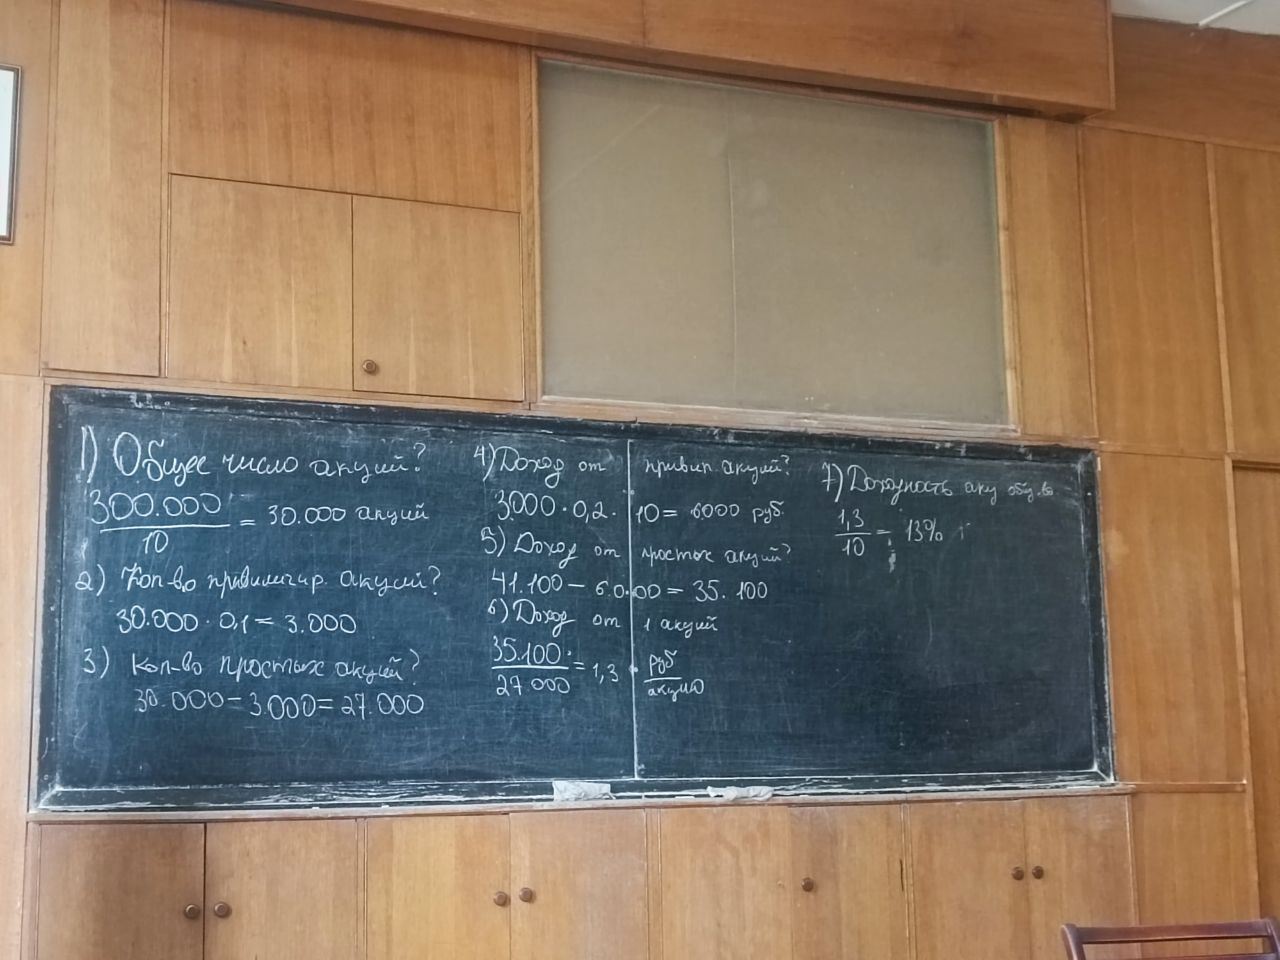 1) Общее число акций?
300.000 / 10 = 30.000 акций
2) Кол-во привилигир. акций?
30.000 · 0,1 = 3.000
3) Кол-во простых акций?
30.000 - 3.000 = 27.000
4) Доход от привил акций?
3000 · 0,2 · 10 = 6000 руб
5) Доход от простых акций?
41.100 - 6.000 = 35.100
6) Доход от 1 акций
35.100 / 27 000 = 1,3 руб / акцию
7) Доходность акц
1,3 / 10 = 13%